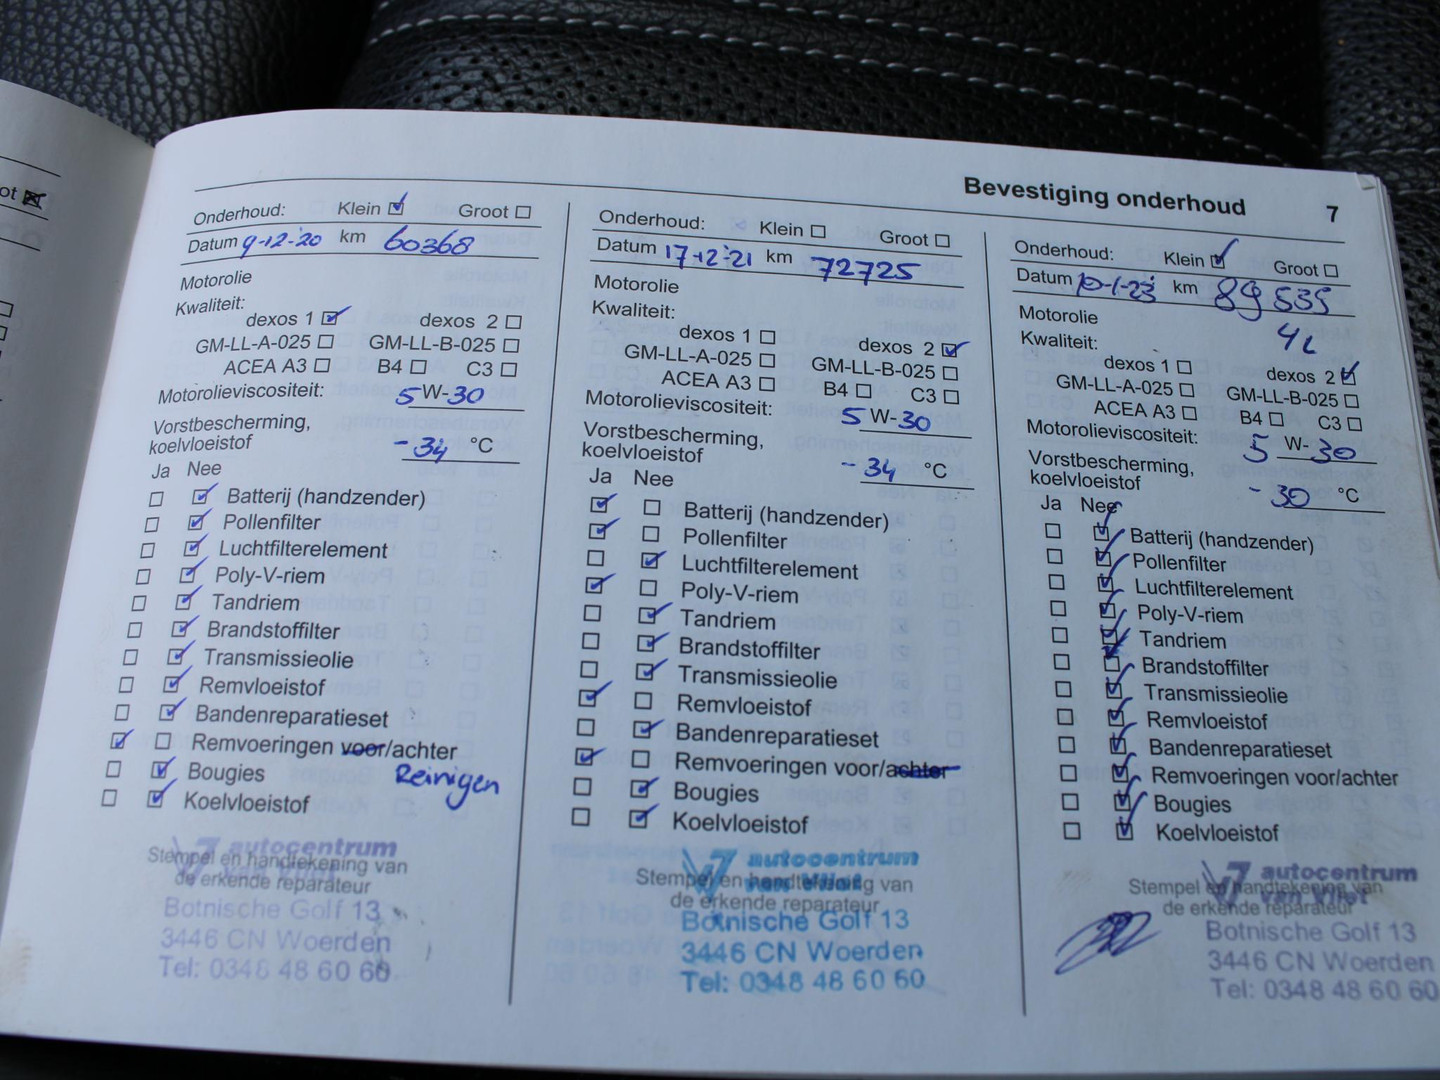 ot
Bevestiging onderhoud 7
Onderhoud: Klein Groot
Datum 9-12-'20 km 60368
Motorolie
Kwaliteit:
dexos 1 dexos 2
GM-LL-A-025 GM-LL-B-025
ACEA A3 B4 C3
Motorolieviscositeit: 5 W-30
Vorstbescherming,
koelvloeistof -34 °C
Ja Nee
Batterij (handzender)
Pollenfilter
Luchtfilterelement
Poly-V-riem
Tandriem
Brandstoffilter
Transmissieolie
Remvloeistof
Bandenreparatieset
Remvoeringen voor/achter
Bougies Reinigen
Koelvloeistof
autocentrum
van Vliet
Stempel en handtekening van
de erkende reparateur
Botnische Golf 13
3446 CN Woerden
Tel: 0348 48 60 60
Onderhoud: Klein Groot
Datum 17-12-'21 km 72725
Motorolie
Kwaliteit:
dexos 1 dexos 2
GM-LL-A-025 GM-LL-B-025
ACEA A3 B4 C3
Motorolieviscositeit: 5 W-30
Vorstbescherming,
koelvloeistof -34 °C
Ja Nee
Batterij (handzender)
Pollenfilter
Luchtfilterelement
Poly-V-riem
Tandriem
Brandstoffilter
Transmissieolie
Remvloeistof
Bandenreparatieset
Remvoeringen voor/achter
Bougies
Koelvloeistof
autocentrum
van Vliet
Stempel en handtekening van
de erkende reparateur
Botnische Golf 13
3446 CN Woerden
Tel: 0348 48 60 60
Onderhoud: Klein Groot
Datum 10-1-23 km 89535
Motorolie 4L
Kwaliteit:
dexos 1 dexos 2
GM-LL-A-025 GM-LL-B-025
ACEA A3 B4 C3
Motorolieviscositeit: 5 W-30
Vorstbescherming,
koelvloeistof -30 °C
Ja Nee
Batterij (handzender)
Pollenfilter
Luchtfilterelement
Poly-V-riem
Tandriem
Brandstoffilter
Transmissieolie
Remvloeistof
Bandenreparatieset
Remvoeringen voor/achter
Bougies
Koelvloeistof
autocentrum
van Vliet
Stempel en handtekening van
de erkende reparateur
Botnische Golf 13
3446 CN Woerden
Tel: 0348 48 60 60